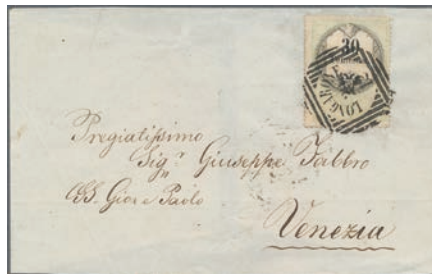 30
LONGARONE
Pregiatissimo
Sigr Giuseppe Fabbro
SS. Gio: e Paolo
Venezia